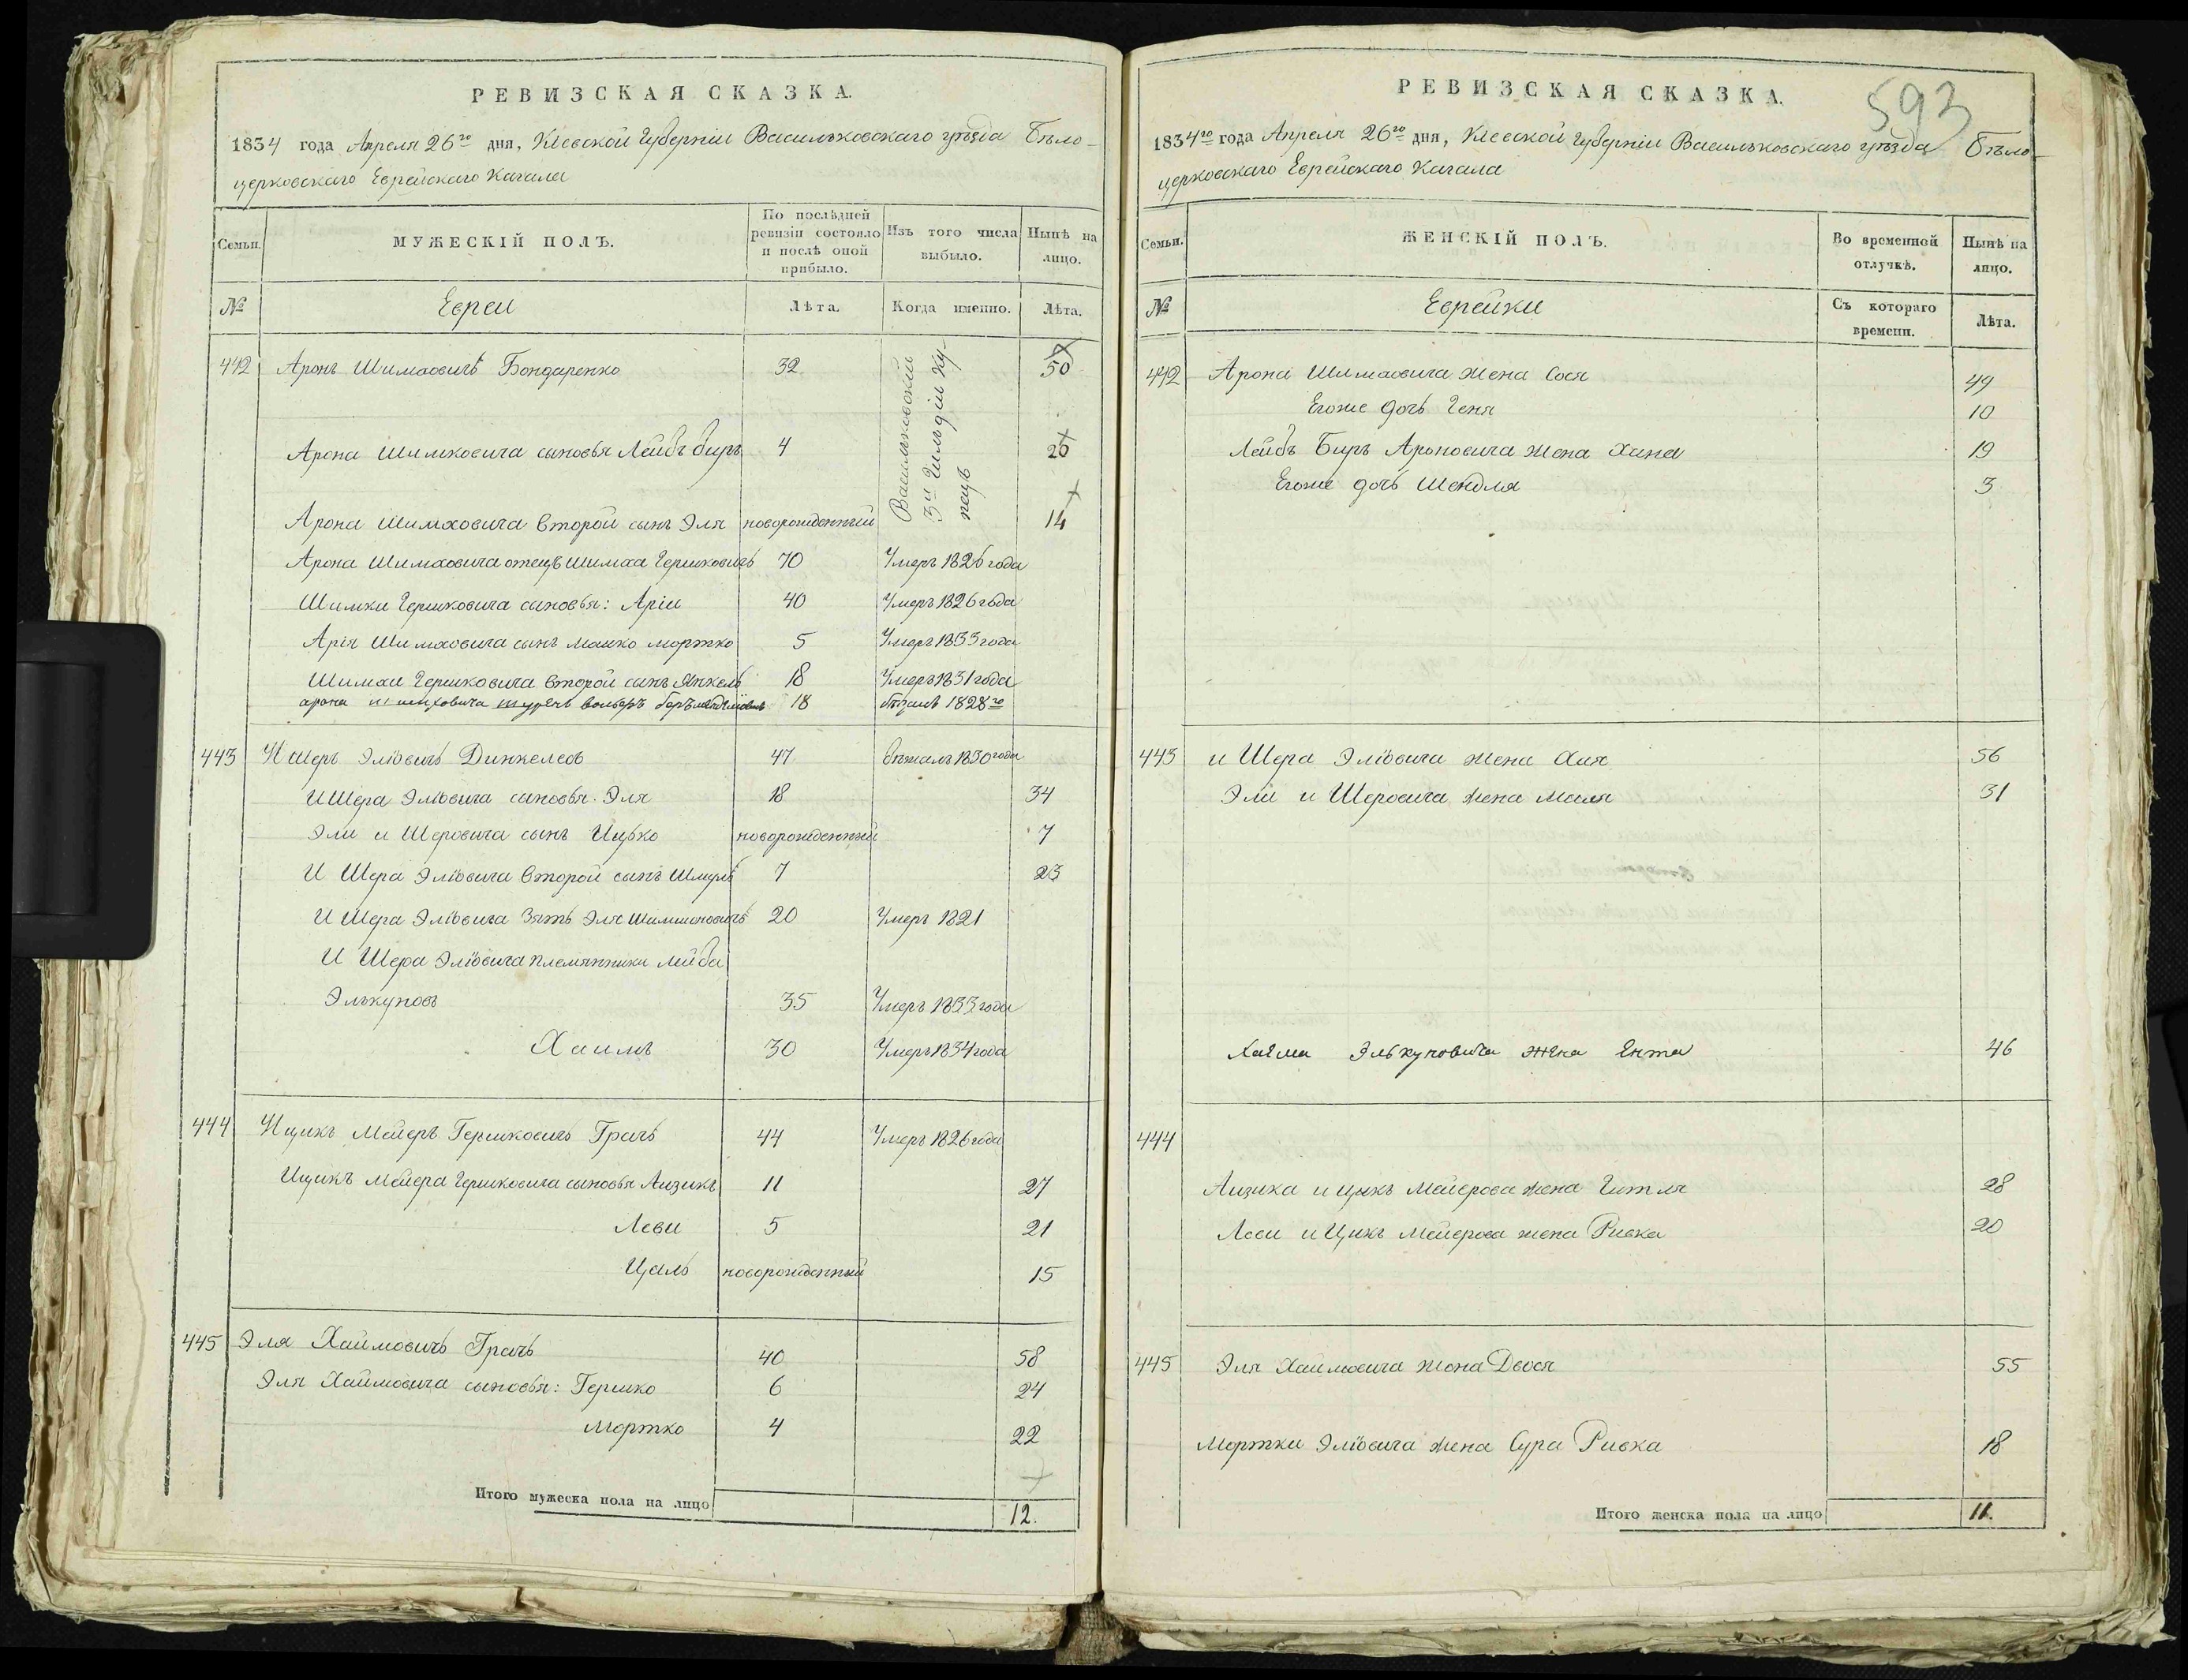 РЕВИЗСКАЯ СКАЗКА.
1834 года Апреля 26го дня, Кіевской Губерніи Васильковскаго уѣзда Бѣло-
церковскаго Еврейскаго Кагала
Семьи.
МУЖЕСКІЙ ПОЛЪ.
По послѣдней ревизіи состояло и послѣ оной прибыло.
Изъ того числа выбыло.
Нынѣ на лицо.
№
Евреи
Лѣта.
Когда именно.
Лѣта.
442 Аронъ Шимховичъ Бондаренко 32 50
Васильковскій
3й Гильдіи ку-
пецъ
Арона Шимховича сыновья Лейбъ Биръ 4 20
Арона Шимховича второй сынъ Эля новорожденный 14
Арона Шимховича отецъ Шимха Гершковичъ 70 Умеръ 1826 года
Шимхи Гершковича сыновья: Арія 40 Умеръ 1826 года
Арія Шимховича сынъ Мошко Мортко 5 Умеръ 1833 года
Шимхи Гершковича второй сынъ Янкель 18 Умеръ 1831 года
Арона Шимховича шуринъ 18 бѣжалъ 1828го
443 И Шеръ Эліовичъ Динкелевъ 47 бѣжалъ 1830 года
И Шера Эліовича сыновья Эля 18 34
Эли и Шеровича сынъ Ицько новорожденный 7
И Шера Эліовича второй сынъ Шмуль 7 23
И Шера Эліовича зять Эля Шимшоновичъ 20 Умеръ 1821
И Шера Эліовича племянники Лейба
Элькуновъ 35 Умеръ 1833 года
Хаимъ 30 Умеръ 1834 года
444 Ицикъ Мейеръ Гершковичъ Грачъ 44 Умеръ 1826 года
Ицикъ Мейера Гершковича сыновья Аизикъ 11 27
Леви 5 21
Цаль новорожденный 15
445 Эля Хаимовичъ Грачъ 40 58
Эля Хаимовича сыновья: Гершко 6 24
Мортко 4 22
Итого мужеска пола на лицо 12.
РЕВИЗСКАЯ СКАЗКА.
593
1834го года Апреля 26го дня, Кіевской Губерніи Васильковскаго уѣзда Бѣло-
церковскаго Еврейскаго Кагала
Семьи.
ЖЕНСКІЙ ПОЛЪ.
Во временной отлучкѣ.
Нынѣ на лицо.
№
Еврейки
Съ котораго времени.
Лѣта.
442 Арона Шимховича жена Сося 49
Егоже дочь Геня 10
Лейбъ Биръ Ароновича жена Хана 19
Егоже дочь Шендля 3
443 и Шера Эліовича жена Хая 56
Эли и Шеровича жена Маля 31
Хаима Элькуновича жена Ента 46
444
Аизика и Цыкъ Мейерова жена Гитля 28
Леви и Цикъ Мейерова жена Ривка 20
445 Эля Хаимовича жена Двося 55
Мортки Эліовича жена Сура Ривка 18
Итого женска пола на лицо 11.